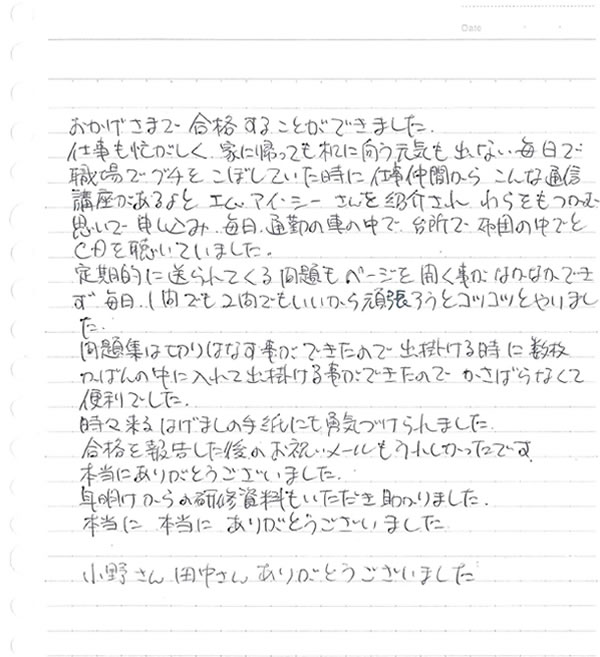 Date
おかげさまで 合格することができました.
仕事も忙がしく、家に帰っても机に向う元気も出ない毎日で
職場でグチをこぼしていた時に 仕事仲間から こんな通信
講座があるよと エム.アイ.シーさんを紹介され わらをもつかむ
思いで申し込み、毎日、通勤の車の中で、台所で 布団の中でと
CDを聴いていました.
定期的に送られてくる問題もページを開く事が なかなかでき
ず 毎日.1問でも2問でもいいから頑張ろうとコツコツとやりまし
た.
問題集は切りはなす事が できたので 出掛ける時に 数枚
かばんの中に入れて出掛ける事ができたので かさばらなくて
便利でした.
時々来るはげましの手紙にも勇気づけられました.
合格を報告した後のお祝いメールもうれしかったです
本当にありがとうございました.
年明けからの研修資料もいただき助かりました.
本当に 本当に ありがとうございました
小野さん 田中さん ありがとうございました